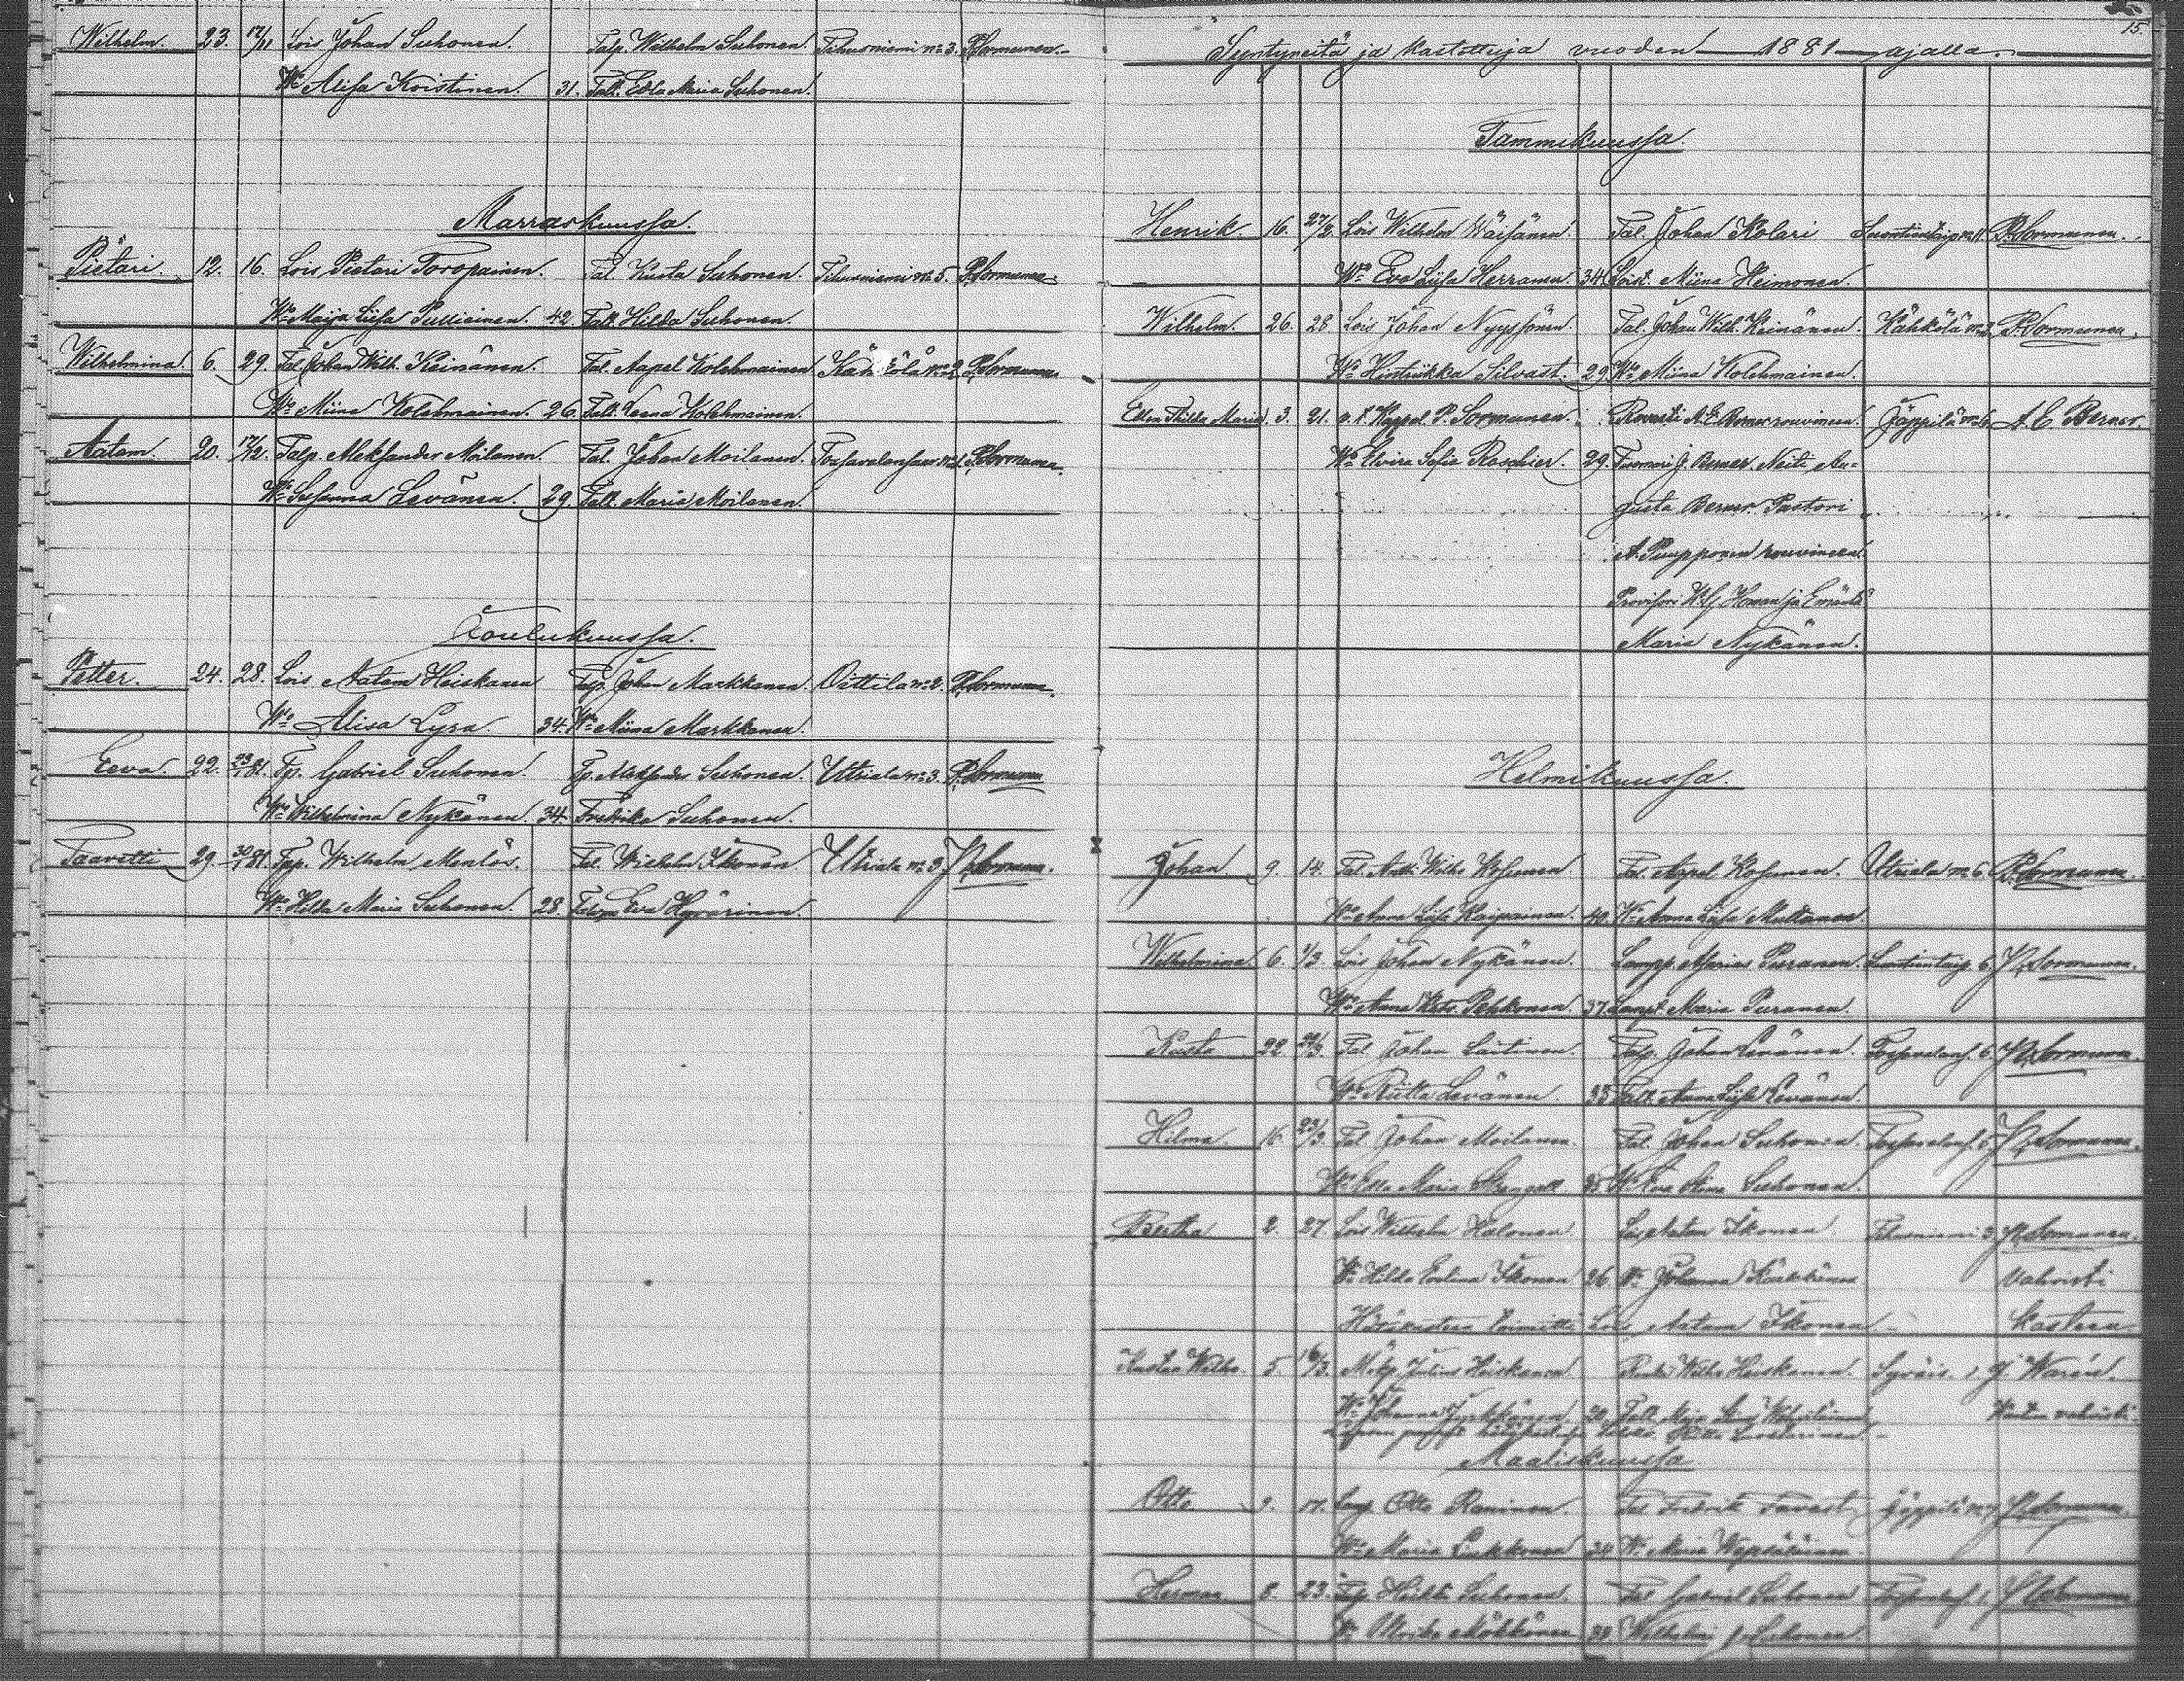 Wilhelm. 23. 17/11 Lois Johan Suhonen. Talp. Wilhelm Suhonen. Tihusniemi No 3. P. Sormunen.
Wo Alisa Koistinen. 31. Talt. Edla Maria Suhonen.
Marraskuussa.
Pietari. 12. 16. Lois Pietari Toropainen. Tal. Kusta Suhonen. Tihusniemi No 5. P. Sormunen.
Wo Maija Liisa Pulliainen. 42. Talt. Hilda Suhonen.
Wilhelmina. 6. 29. Tal. Johan Wilh. Keinänen. Tal. Aapel Kolehmainen No 2 P. Sormunen.
Wo Miina Kolehmainen. 26. Talt. Leena Kolehmainen.
Aatam. 20. 12/12. Talp. Aleksander Moilanen. Tal. Johan Moilanen. P. Sormunen.
Wo Susanna Levänen. 29. Talt. Maria Moilanen.
Joulukuussa.
Petter. 24. 28. Lois Aatam Heiskanen Talp. Johan Markkanen. Oittila No 2. P. Sormunen.
Wo Alisa Lyra. 34. Wo Miina Markkanen.
Eeva. 22. 23/1 81. Tp. Gabriel Suhonen. Tp. Aleksander Suhonen. Utriala No 3. P. Sormunen
Wo Wilhelmina Nykänen. 34. Fredrika Suhonen.
Taavetti 29. 30/1 81. Tpp. Wilhelm Menlös. Tal. Wilhelm Ikonen Utriala No 3 P. Sormunen.
Wo Hilda Maria Suhonen. 28. Eva Hyvärinen.
15.
Syntyneitä ja kastettuja vuoden 1881 ajalla.
Tammikuussa.
Henrik. 16. 27/2. Lois Wilhelm Väisänen. Tal. Johan Kolari P. Sormunen.
Wo Eva Liisa Herranen 34. Loist. Miina Heimonen.
Wilhelm. 26. 28. Lois Johan Nyyssönen. Tal. Johan Wilh. Keinänen. Kähkölä No 2 P. Sormunen.
Wo Hintriikka Silvast. 29. Wo Miina Kolehmainen.
Ellen Thilda Maria. 3. 21. v.t. Kappal. P. Sormunen. Rovasti A.E. Berner rouvineen. Jäppilä No 6. A. E. Berner.
Wo Elvira Sofia Roschier. 29. Tuomari J. Berner. Neiti Au-
gusta Berner. Pastori
A. Pumpponen rouvineen.
Provisori Homan ja Emäntä
Maria Nykänen.
Helmikuussa.
Johan 9. 14. Tal. Antti Wilho Kosunen. Tal. Aapel Kosunen. Utriala No 6. P. Sormunen.
Wo Anna Liisa Kaipainen. 40. Wo Anna Liisa Multanen.
Wilhelmina. 6. 1/3. Lois Johan Nykänen. Lampp. Puranen. 6. P. Sormunen.
Wo Anna Pehkonen. 37. Lampt. Maria Puranen.
Kusta 22 Tal Johan Laitinen. Talp. Johan Levänen. 6. P. Sormunen.
Wo Riitta Levänen. 35 Talt. Anna Liisa Levänen.
Hilma 16 23/3 Tal Johan Moilanen. Tal. Johan Suhonen. P. Sormunen.
Wo Edla Maria Stengell Wo Eva Stina Suhonen.
Bertha 2. 27. Lois Wilhelm Halonen. Lois Aatam Ikonen. Tihusniemi 3. P. Sormunen.
Wo Hilda Evelina Ikonen 26. Wo Johanna vahvisti
Hätäkasteen toimitti Lois Aatam Ikonen. kasteen.
Kustaa Wilho. 5. 16/3. Mökp. Julius Heiskanen. Renki Wilho Heiskanen. Syväis. 1. J. Warén.
Wo Johanna Talt. Maija vahvisti.
Maaliskuussa
Otto 9. 17. Lamp. Otto Raninen. Tal Fredrik Tavast Jäppilä P. Sormunen.
Wo Maria Liukkonen Wo Maria
Herman 8. 23. Talp. Heikki Suhonen. Tal Gabriel Suhonen 1. P. Sormunen.
Wo Ulrika Mökkönen Suhonen.